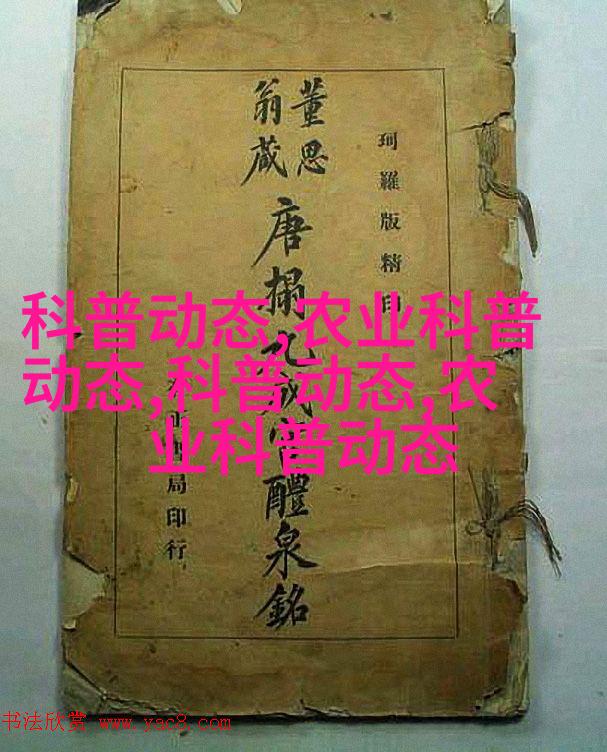 珂羅版精印
董思
翁藏
唐搨九成宮醴泉銘
正書局印行
科普动态,农业科普
动态,科普动态,农
业科普动态
书法欣赏 www.yac8.com